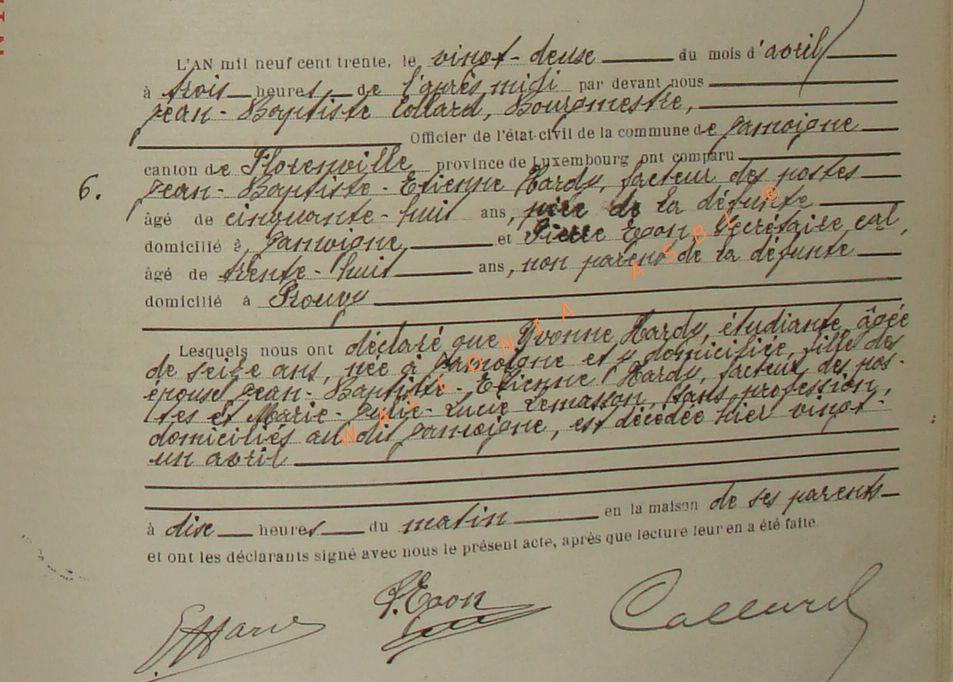 L'AN mil neuf cent trente, le vingt-deux du mois d'avril
à trois heures de l'après midi par devant nous
Jean-Baptiste Collard, Bourgmestre,
Officier de l'état-civil de la commune de Jamoigne
canton de Florenville province de Luxembourg ont comparu
6. Jean-Baptiste-Etienne Hardy, facteur des postes
âgé de cinquante-huit ans, père de la défunte
domicilié à Jamoigne, et Pierre Evon, Secrétaire cal,
âgé de trente-huit ans, non parent de la défunte
domicilié à Prouvy
Lesquels nous ont déclaré que Yvonne Hardy, étudiante, âgée
de seize ans, née à Jamoigne et y domiciliée, fille des
époux Jean-Baptiste-Etienne Hardy, facteur des pos-
tes et Marie-Julie-Lucie Lemasson, sans profession,
domiciliés au dit Jamoigne, est décédée hier vingt-
un avril
à dix heures du matin en la maison de ses parents
et ont les déclarants signé avec nous le présent acte, après que lecture leur en a été faite
P. Evon
Collard
WALLONIA ASBL ®